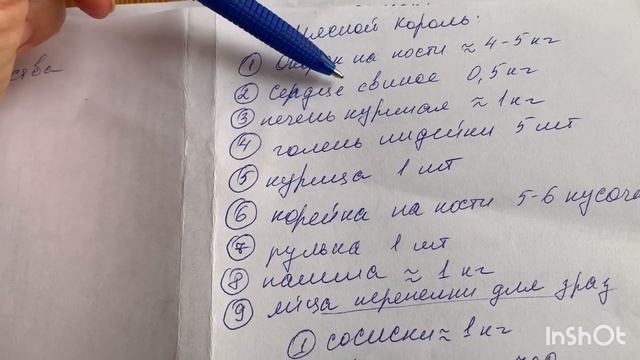 Мясной король:
ства
① Окорок на кости ≈ 4-5 кг
② Сердце свиное 0,5 кг
③ печень куриная ≈ 1 кг
④ голень индейки 5 шт
⑤ курица 1 шт
⑥ корейка на кости 5-6 кусоче
⑦ рулька 1 шт
⑧ пашина ≈ 1 кг
⑨ яйца перепелки для зраз
① сосиски ≈ 1 кг
InShOt